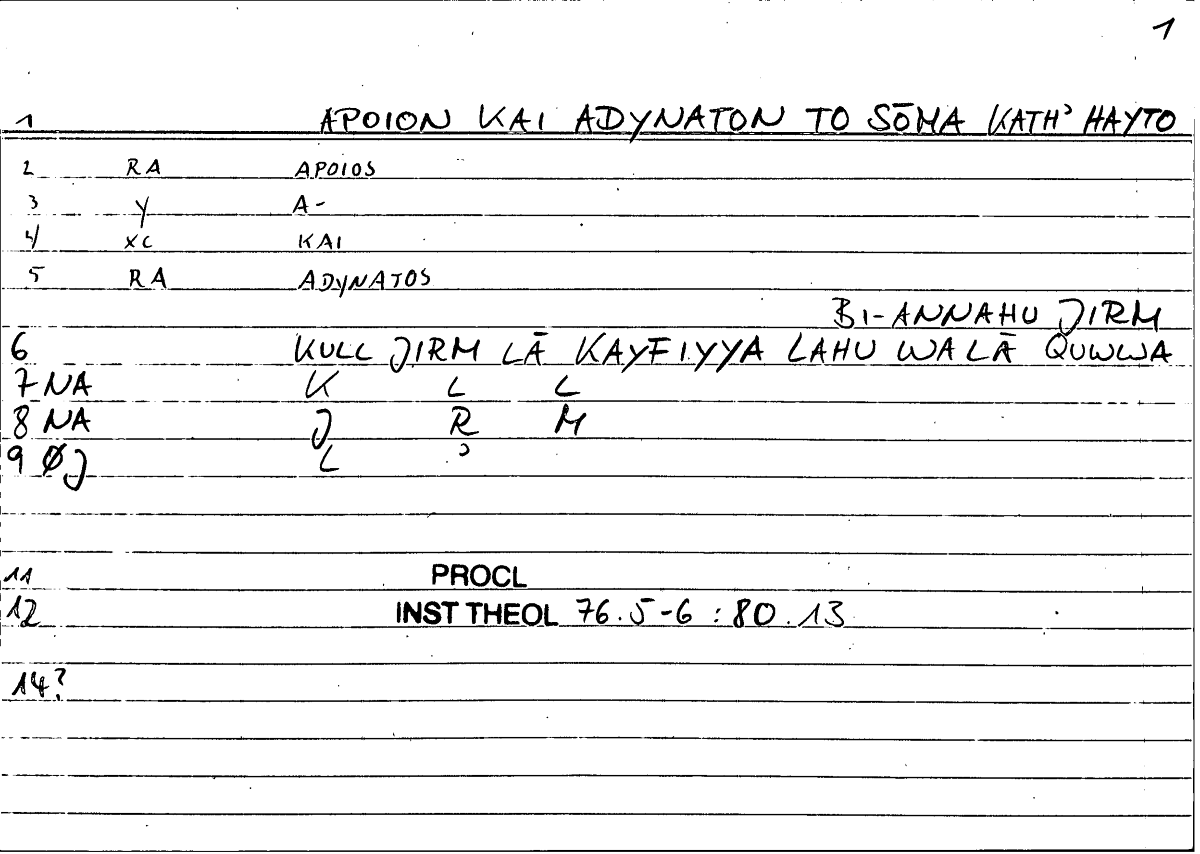 1
1 APOION KAI ADYNATON TO SŌMA KATHʾ HAYTO
2 RA APOIOS
3 Y A-
4 XC KAI
5 RA ADYNATOS
BI-ANNAHU JIRM
6 KULL JIRM LĀ KAYFIYYA LAHU WA LĀ QUWWA
7 NA K L L
8 NA J R M
9 ØJ L ʾ
11 PROCL
12 INST THEOL 76.5-6 : 80.13
14?